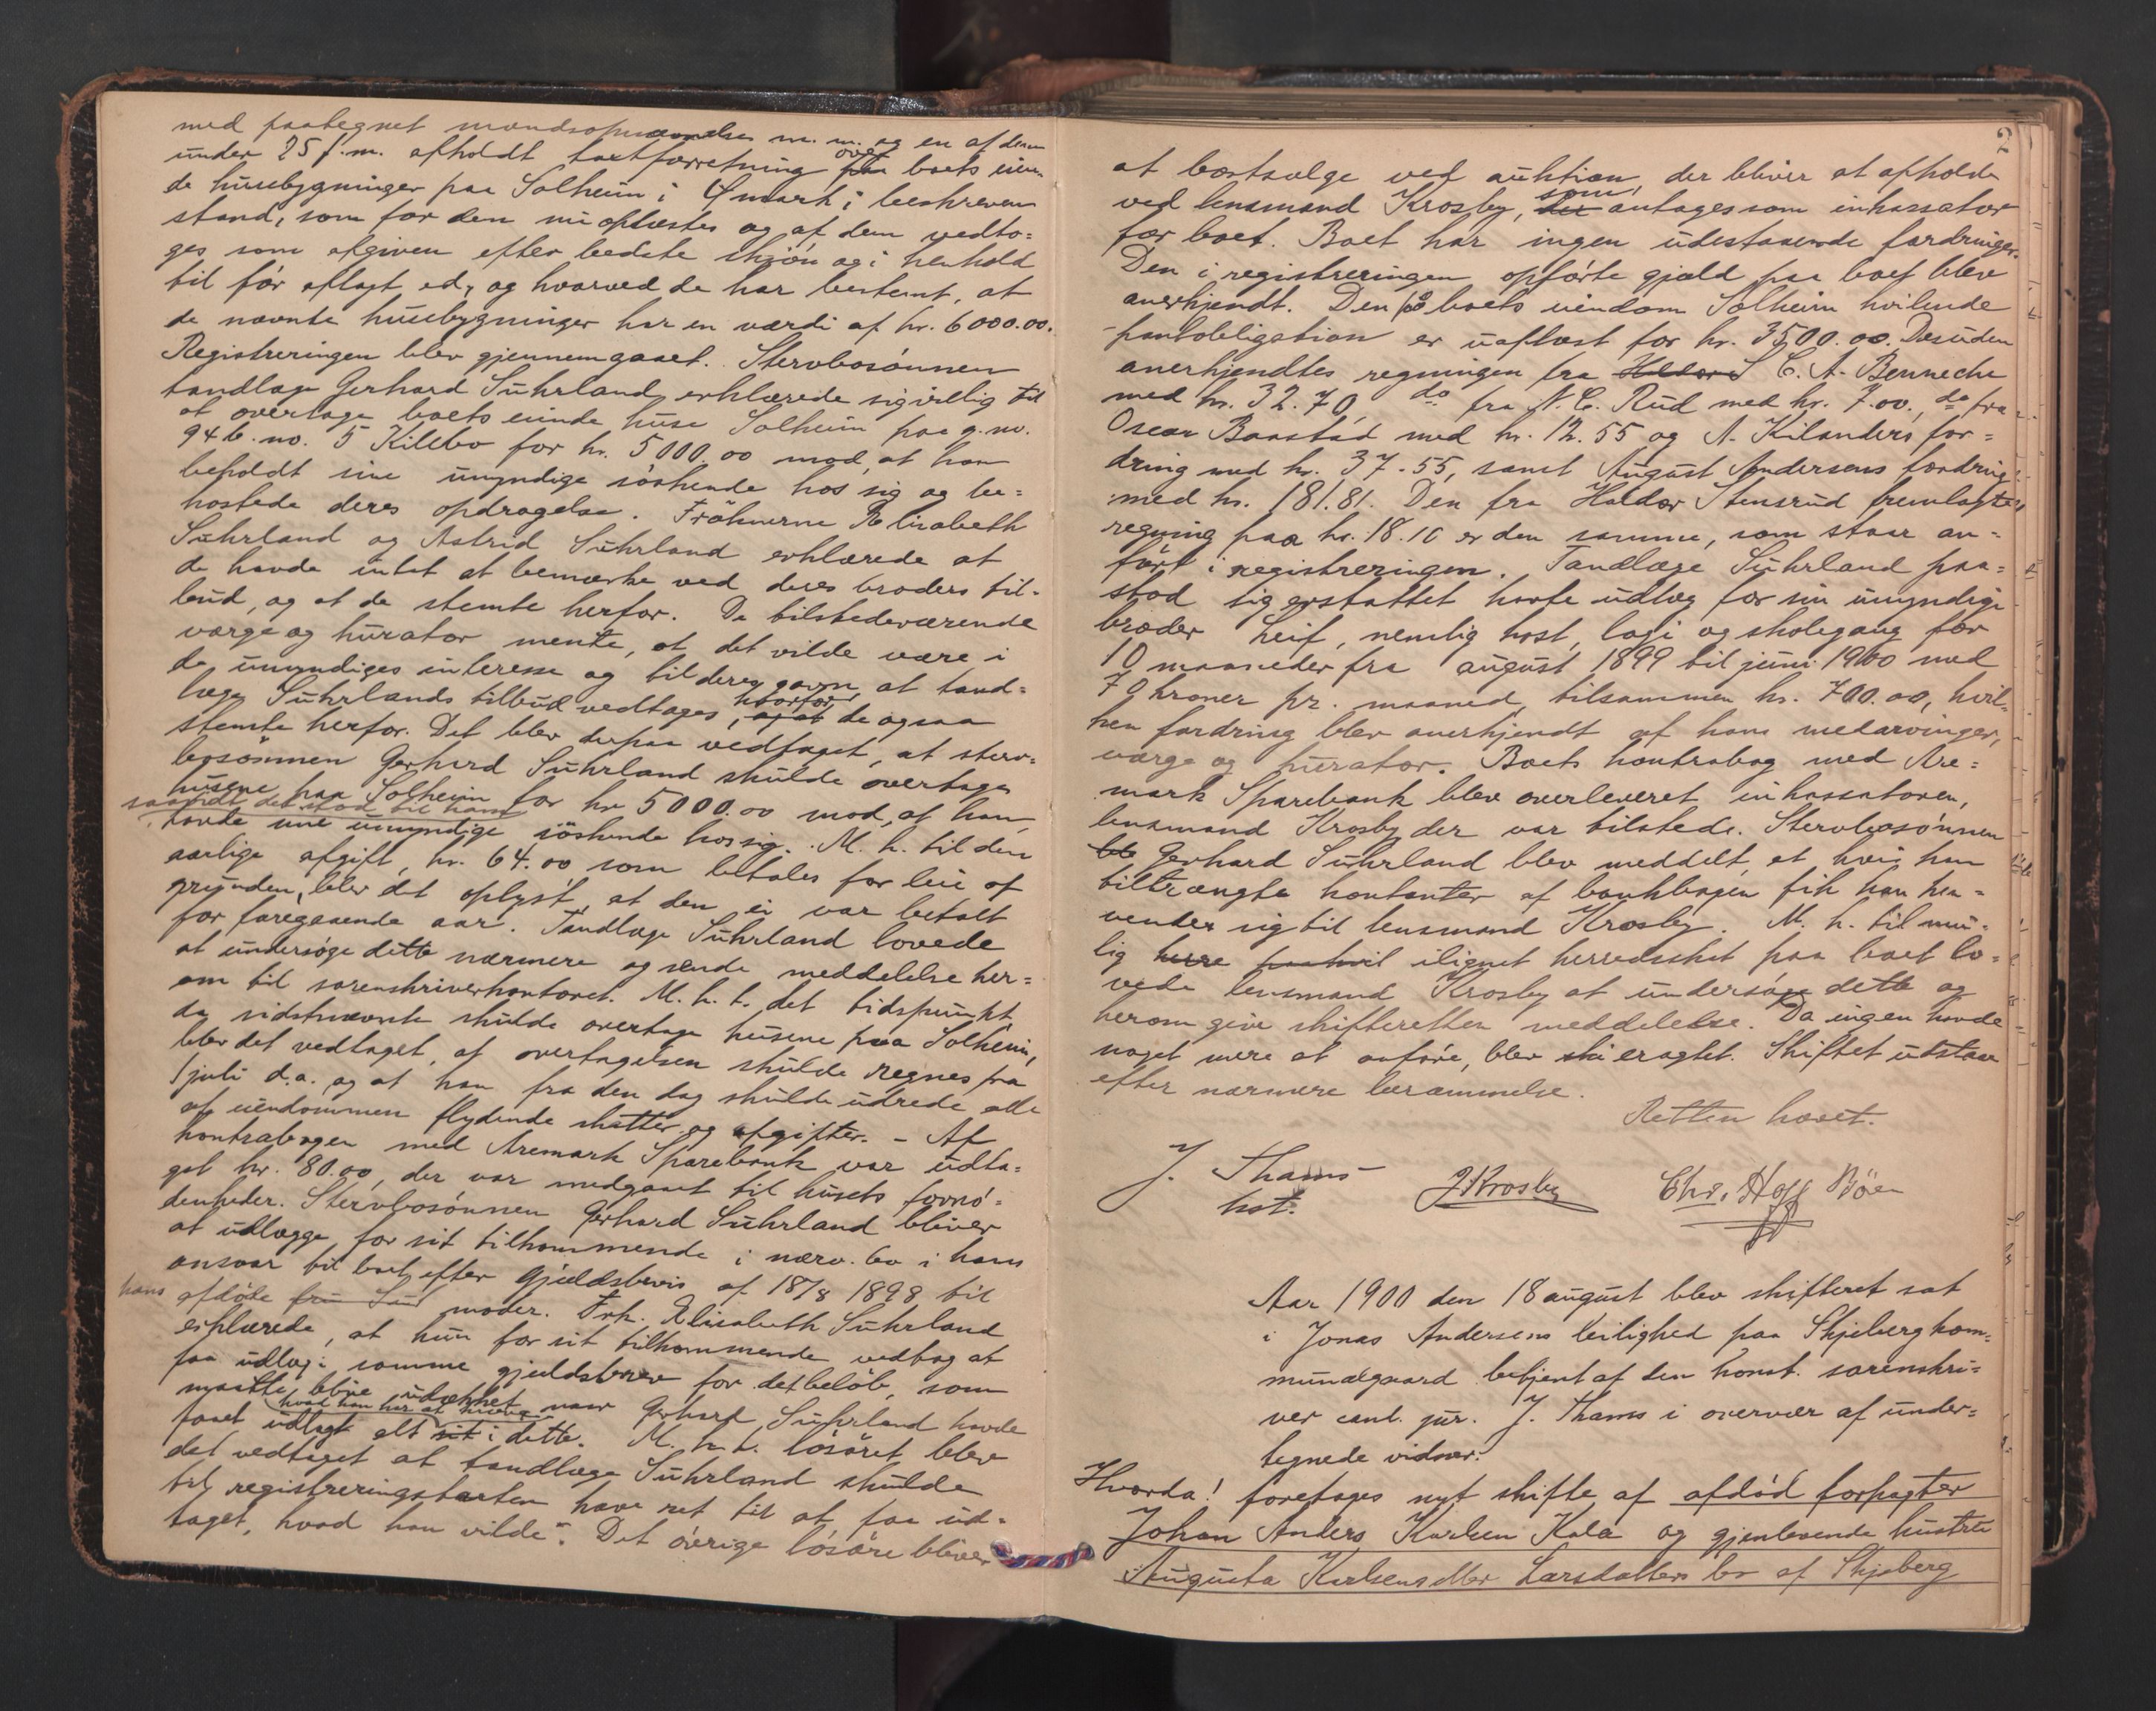 med paategnet mandsopnævnelse m. m. og en af dem
under 25 f. m. afholdt taxtforretning over boets eien-
de husebygninger paa Solheim i Ømark i beskreven
stand, som for dem nu oplæstes og af dem vedto-
ges som afgiven efter bedste skjøn og i henhold
til før aflagt ed, og hvorved de har bestemt, at
de nævnte husebygninger har en værdi af kr. 6000.00.
Registreringen blev gjennemgaaet. Stervbosønnen
tandlæge Gerhard Suhrland erklærede sig villig til
at overtage boets eiende huse Solheim paa g. no.
94 b. no. 5 Killebo for kr. 5000.00 mod, at han
beholdt sine umyndige søskende hos sig og be-
kostede deres opdragelse. Frøknerne Elisabeth
Suhrland og Astrid Suhrland erklærede at
de havde intet at bemærke ved deres broders til-
bud, og at de stemte herfor. De tilstedeværende
værge og kurator mente, at det vilde være i
de umyndiges interesse og til deres gavn at tand-
læge Suhrlands tilbud vedtages, hvorfor de ogsaa
stemte herfor. Det blev derpaa vedtaget, at sterv-
bosønnen Gerhard Suhrland skulde overtage
husene paa Solheim for kr 5000.00 mod, at han,
saavidt det stod til ham
havde sine umyndige søskende hos sig. M. h. til den
aarlige afgift, kr. 64.00 som betales for leie af
grunden, blev det oplyst, at den ei var betalt
for foregaaende aar. Tandlæge Suhrland lovede
at undersøge dette nærmere og sende meddelelse her-
om til sorenskriverkontoret. M. h. t. det tidspunkt,
da sidstnævnte skulde overtage husene paa Solheim,
blev det vedtaget, at overtagelsen skulde regnes fra
1 juli d. a. og at han fra den dag skulde udrede alle
af eiendommen flydende skatter og afgifter. – Af
kontrabogen med Aremark Sparebank var udta-
get kr. 80.00, der var medgaaet til husets fornø-
denheder. Stervbosønnen Gerhard Suhrland bliver
at udlægge for sit tilkommende i nærv. bo i hans
ansvar til boet efter gjældsbevis af 18/8 1898 til
hans afdøde fru moder. Frk. Elisabeth Suhrland
erklærede, at hun for sit tilkommende vedtog at
faa udlæg i samme gjældsbrev for det beløb, som
maatte blive udækket naar Gerhard Suhrland havde
hvad han har at kræve
faaet udlagt alt sit i dette. M. h. t. løsøret blev
det vedtaget at tandlæge Suhrland skulde
til registreringstaxten have ret til at faa ud-
taget, hvad han vilde. Det øvrige løsøre bliver
2
at bortsælge ved auktion, der bliver at afholde
ved lensmand Krosby, som antages som inkassator
for boet. Boet har ingen udestaaende fordringer.
Den i registreringen opførte gjæld paa boet blev
anerkjendt. Den på boets eiendom Solheim hvilende
pantobligation er uaflæst for kr. 3500.00. Desuden
anerkjendtes regningen fra C. A. Benneche
med kr. 32.70, do fra N. C. Rud med kr. 7.00, do fra
Oscar Baastad med kr. 12.55 og A. Kilanders for-
dring med kr. 37.55, samt August Andersens fordring
med kr. 181.81. Den fra Haldor Stensrud fremlagte
regning paa kr. 18.10 er den samme, som staar an-
ført i registreringen. Tandlæge Suhrland paa-
stod sig erstattet havte udlæg for sin umyndige
broder Leif, nemlig kost, logi og skolegang for
10 maaneder fra august 1899 til juni 1900 med
70 kroner pr. maaned, tilsammen kr. 700.00, hvil-
ken fordring blev anerkjendt af hans medarvinger,
værge og kurator. Boets kontrabog med Are-
mark Sparebank blev overleveret inkassatoren,
lensmand Krosby der var tilstede. Stervbosønnen
ble Gerhard Suhrland blev meddelt, at hvis han
tiltrængte kontanter af bankbogen fik han hen-
vende sig til lensmand Krosby. M. h. til mu-
lig herre ilignet herredsskat paa boet lo-
vede lensmand Krosby at undersøge dette og
herom give skifteretten meddelelse. Da ingen havde
noget mere at anføre, blev eragtet. Skiftet udstaar
efter nærmere berammelse.
Retten hævet.
J. Thams
kst.
J Krosby
Chr. Hoff Böen
Aar 1900 den 18 august blev skifteret sat
i Jonas Andersens leilighed paa Skjeberg kom-
munelgaard betjent af den konst. sorenskri-
ver cand. jur. J. Thams i overvær af under-
tegnede vidner.
Hvorda! foretages nyt skifte af afdød forpagter
Johan Anders Karlsen Kala og gjenlevende hustru
Augusta Karlsens eller Larsdatters bo af Skjeberg